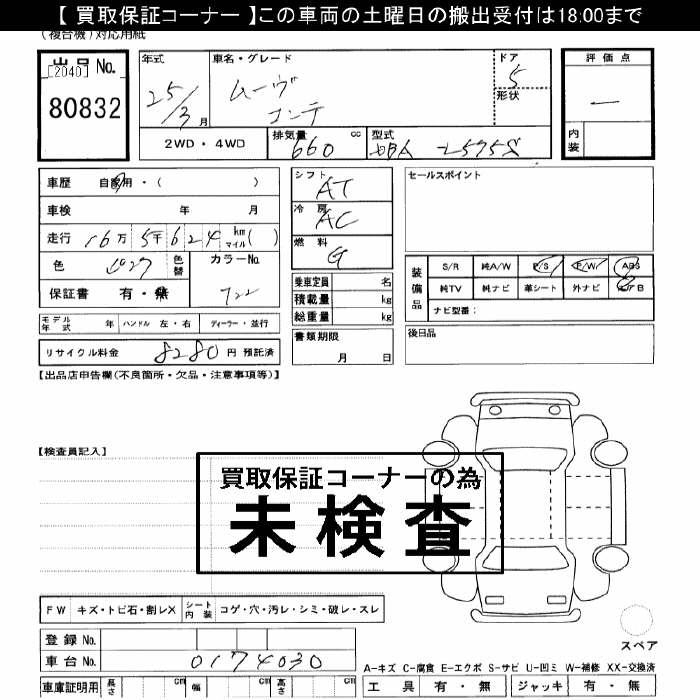 【 買取保証コーナー 】この車両の土曜日の搬出受付は18:00まで
(複合機)対応用紙
出品 No.
[2040]
80832
年式
25/3 月
車名・グレード
ムーヴ
コンテ
ドア
5
形状
評価点
—
内装
2WD・4WD
排気量 660 cc
型式 DBA L575S
車歴 自家用・( )
車検 年 月
走行 16万 5千 6 2 4 km マイル ( )
色
色替
カラーNo.
722
保証書 有・無
シフト AT
冷房 AC
燃料 G
乗車定員 名
積載量 kg
総重量 kg
書類期限
月 日
セールスポイント
装備品
S/R 純A/W P/S P/W ABS
純TV 純ナビ 革シート 外ナビ
ナビ型番:
後日品
モデル年式 年 ハンドル 左・右 ディーラー・並行
リサイクル料金 8280 円 預託済
【出品店申告欄(不良箇所・欠品・注意事項等)】
【検査員記入】
買取保証コーナーの為
未検査
FW キズ・トビ石・割レX シート内装 コゲ・穴・汚レ・シミ・破レ・スレ
登録 No.
車台 No. 0174030
車庫証明用 長さ cm 幅 cm 高さ cm
スペア
A-キズ C-腐食 E-エクボ S-サビ U-凹ミ W-補修 XX-交換済
工具 有・無 ジャッキ 有・無